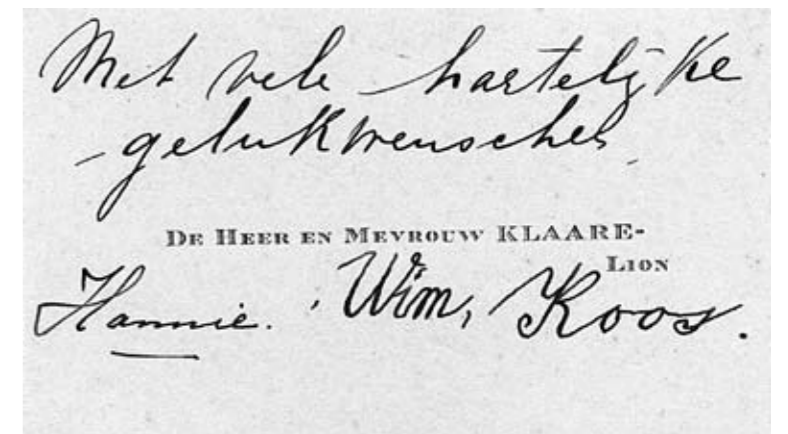 Met vele hartelijke
gelukwenschen
DE HEER EN MEVROUW KLAARE-
LION
Hannie. Wim, Koos.